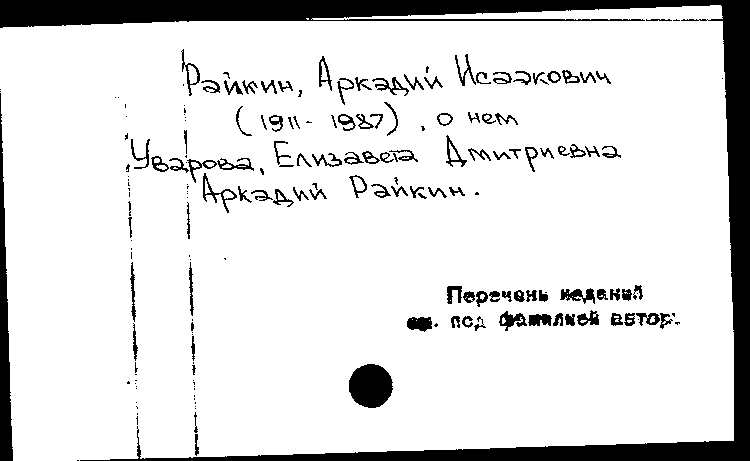 Райкин, Аркадий Исаакович
(1911-1987), о нем
Уварова, Елизавета Дмитриевна
Аркадий Райкин.
Перечень изданий
см. под фамилией автора.